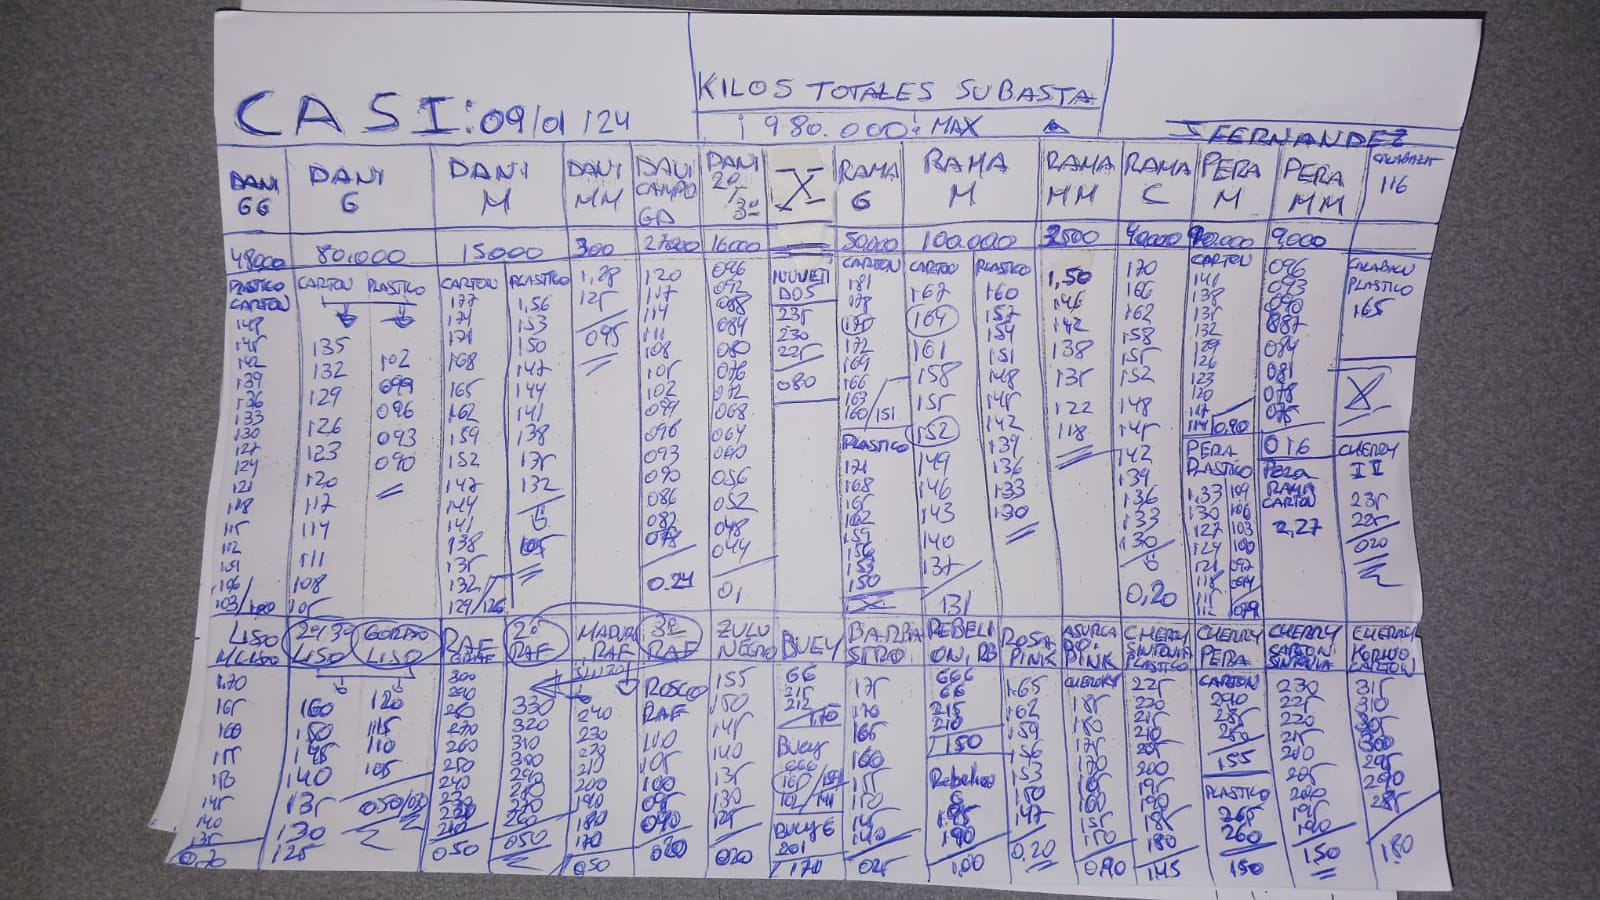 KILOS TOTALES SUBASTA
CASI: 09/01/24
¡980.000¡ MAX
J FERNANDEZ
DANI GG
DANI G
DANI M
DANI MM
DANI CAMPO GD
DANI 2º/3º
X
RAMA G
RAMA M
RAMA MM
RAMA C
PERA M
PERA MM
116
48000
80.000
15000
300
27000
16000
50.000
100.000
3500
40000
9.000
PLASTICO CARTON
148
145
142
139
136
133
130
127
124
121
118
115
112
109
106
103/100
CARTON
135
132
129
126
123
120
117
114
111
108
105
PLASTICO
102
099
096
093
090
CARTON
177
174
171
168
165
162
159
152
147
144
141
138
135
132
129/126
PLASTICO
1,56
153
150
147
144
141
138
135
132
105
1,28
125
095
120
117
114
111
108
105
102
099
096
093
090
086
082
078
0.24
096
092
088
084
080
076
072
068
064
060
056
052
048
044
0,1
235
230
225
080
CARTON
181
178
175
172
169
166
163
160/151
PLASTICO
171
168
165
162
159
156
153
150
CARTON
167
164
161
158
155
152
149
146
143
140
137
131
PLASTICO
160
157
154
151
148
145
142
139
136
133
130
1,50
146
142
138
135
122
118
170
166
162
158
155
152
148
145
142
139
136
133
130
0,20
CARTON
141
138
135
132
129
126
123
120
117
114/0,90
PERA PLASTICO
1,33 109
130 106
127 103
124 100
121 097
118 094
115
112 079
096
093
090
087
084
081
078
075
016
PERA RAMA CARTON
2,27
PLASTICO
165
X
CHERRY
235
225
020
LISO M LISO
170
165
160
155
150
145
140
135
0,70
2º/3º LISO
160
150
145
140
135
130
125
GORDO LISO
120
115
110
105
RAF
300
290
280
270
260
250
240
230
220
210
050
2º RAF
330
320
310
300
290
280
270
260
050
MADURO RAF
240
230
220
210
200
190
180
170
050
3º RAF
ROSCO RAF
110
105
100
095
090
020
ZULU NEGRO
155
150
145
140
135
130
125
020
BUEY
66
215
212
170
BUEY
666
BUEY G
201
170
BARBASTRO
175
170
165
160
155
150
145
140
REBELION, RB
666
66
215
210
150
Rebelion
G
195
190
1,00
ROSA PINK
165
162
159
156
153
150
147
0,20
ASURCADO PINK
185
180
175
170
165
160
155
150
0,90
CHERRY SINTONIA PLASTICO
225
220
215
210
205
200
195
190
185
180
1,45
CHERRY PERA
CARTON
290
285
280
155
PLASTICO
265
260
150
CHERRY CARTON SINTONIA
230
225
220
215
210
205
200
195
190
1,50
CHERRY KORUO CARTON
315
310
305
300
295
290
285
1,80